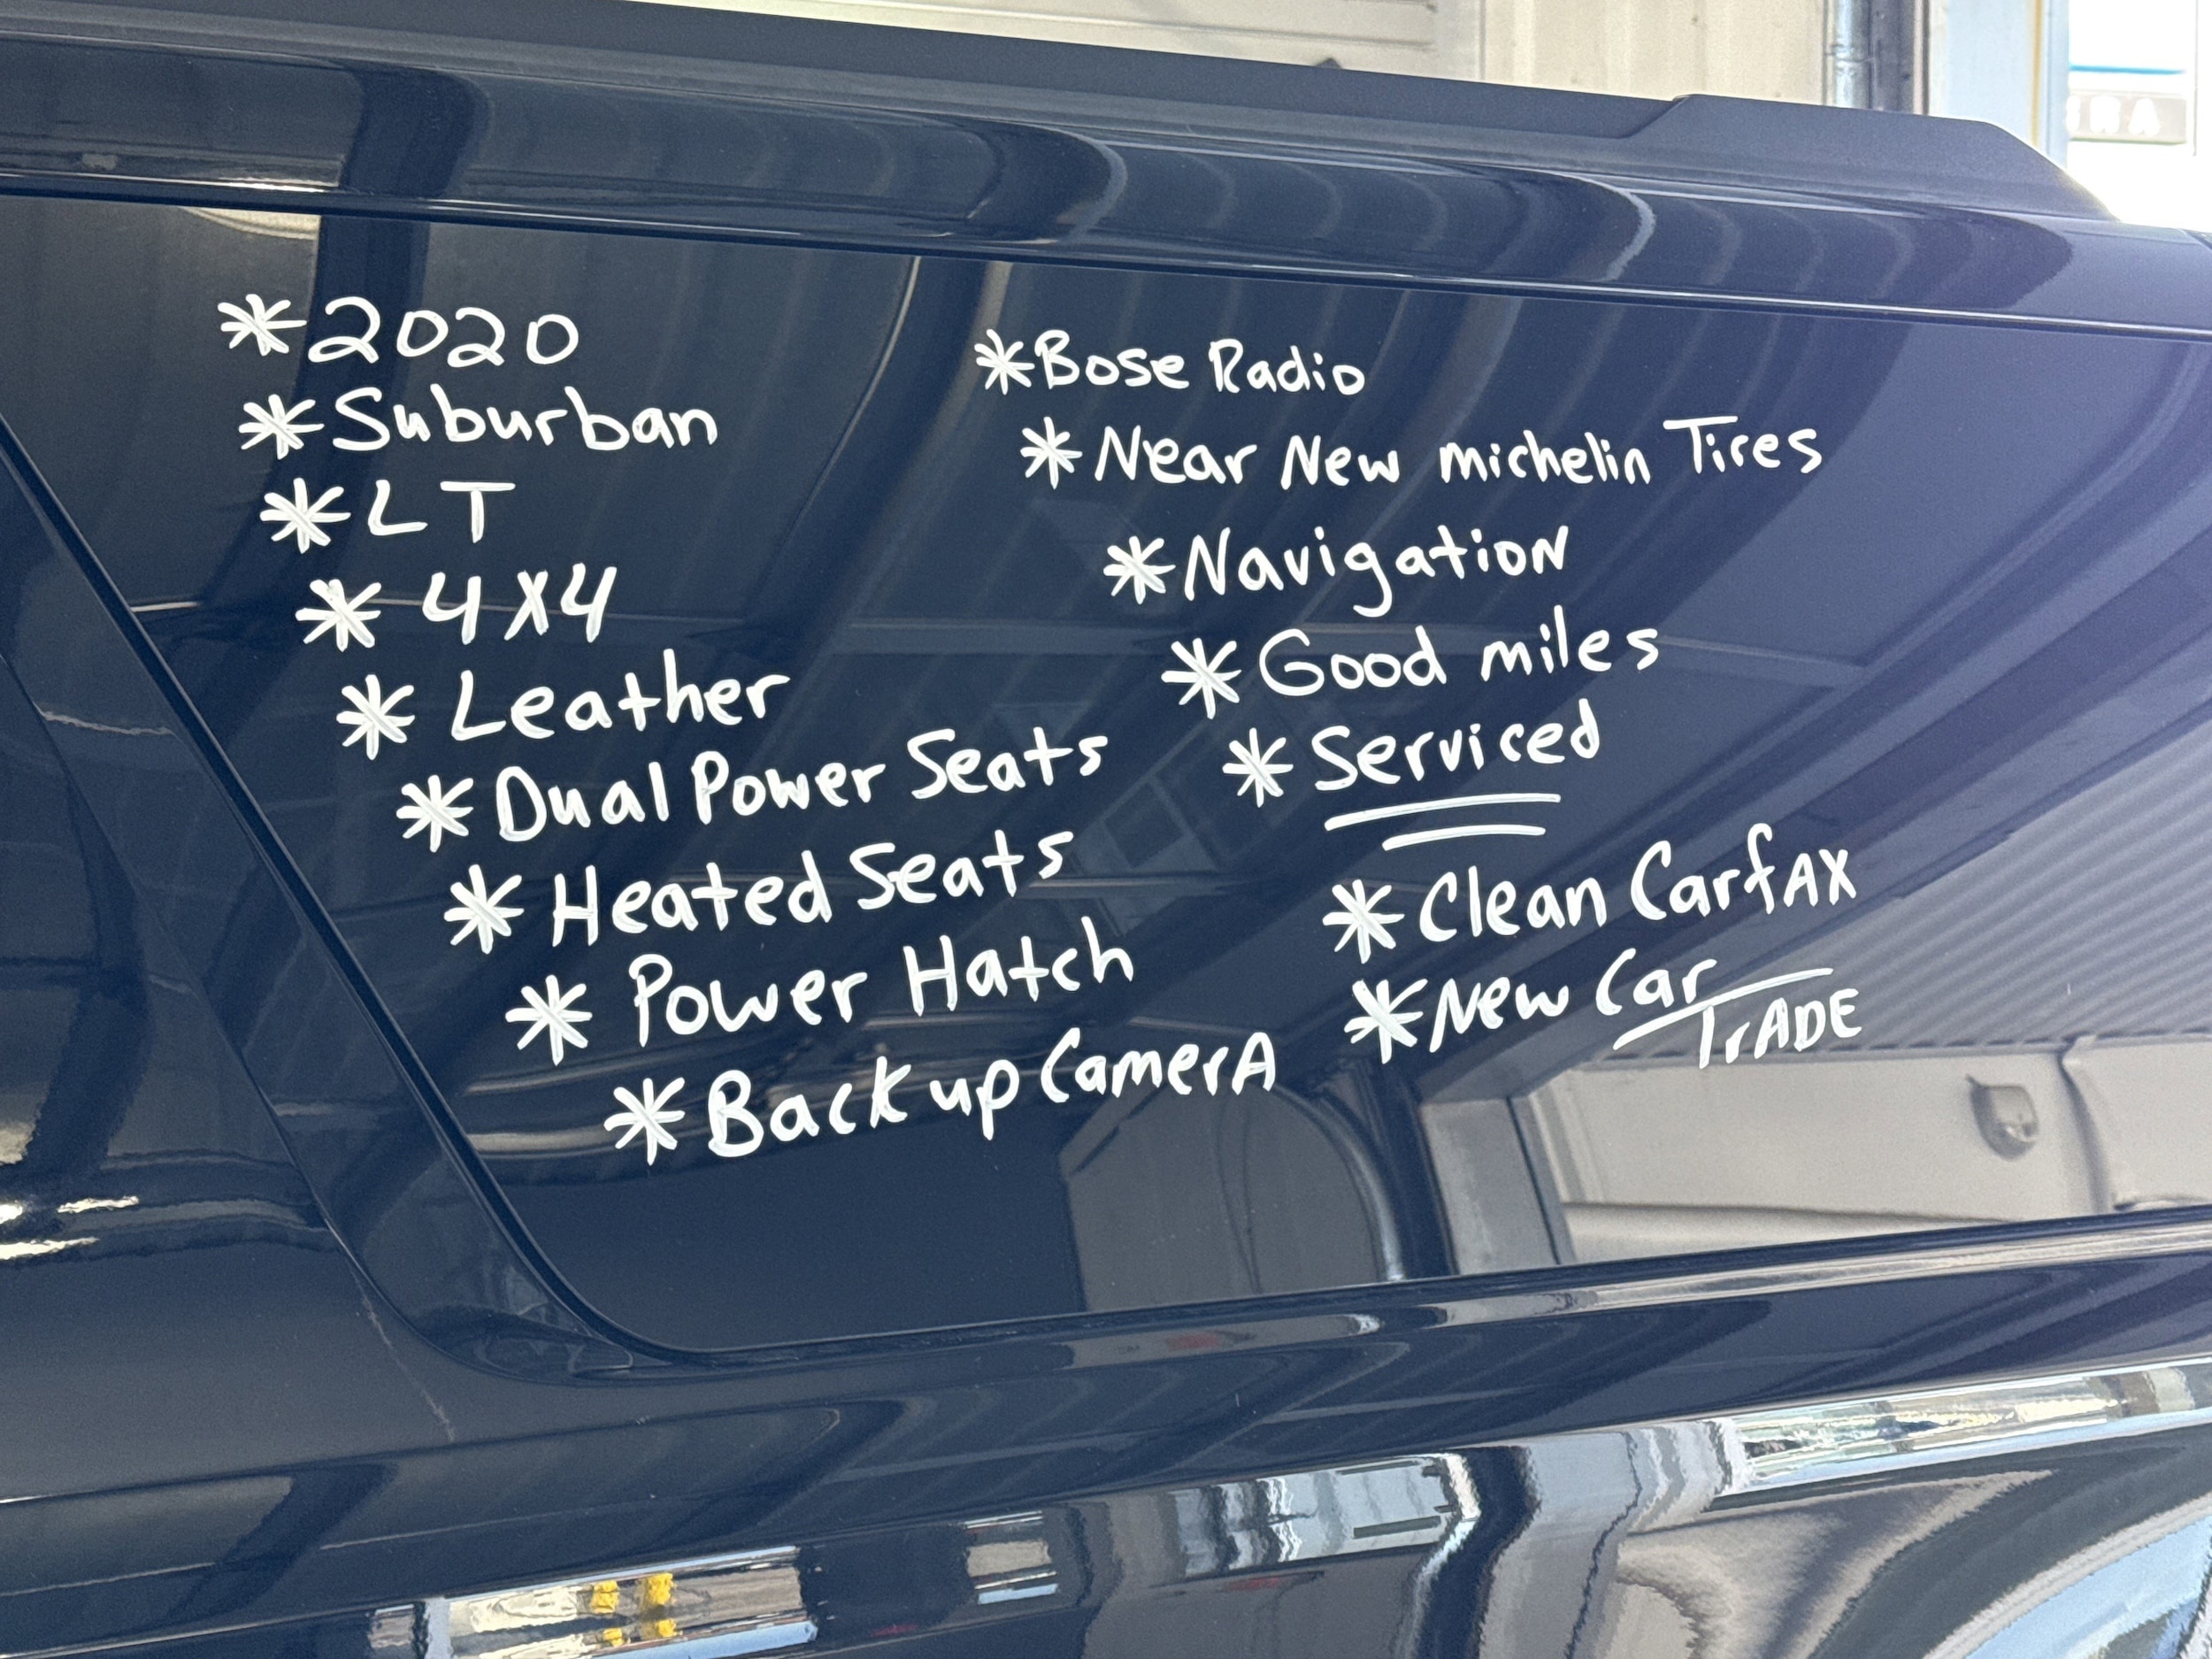 *2020
*Suburban
*LT
* 4X4
* Leather
* Dual Power Seats
* Heated Seats
* Power Hatch
*Back up CamerA
*Bose Radio
*Near New michelin Tires
*Navigation
* Good miles
* Serviced
* Clean CarfAX
*New Car
TrADE